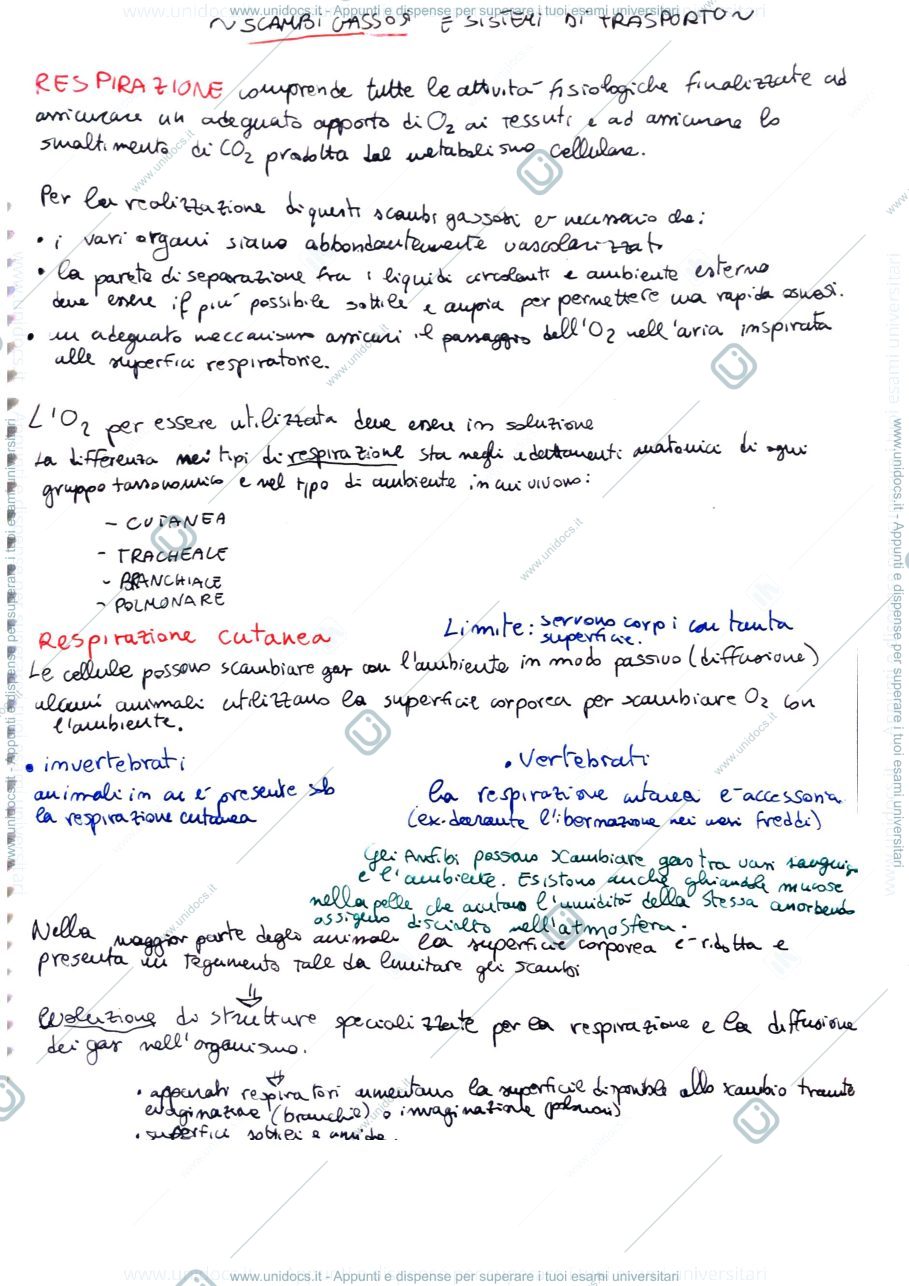 www.unidocs.it - Appunti e dispense per superare i tuoi esami universitari
~ SCAMBI GASSOSI E SISTEMI DI TRASPORTO ~
RESPIRAZIONE comprende tutte le attività fisiologiche finalizzate ad
assicurare un adeguato apporto di O2 ai tessuti e ad assicurare lo
smaltimento di CO2 prodotta dal metabolismo cellulare.
Per la realizzazione di questi scambi gassosi è necessario che:
• i vari organi siano abbondantemente vascolarizzati
• la parete di separazione fra i liquidi circolanti e ambiente esterno
deve essere il più possibile sottile e ampia per permettere una rapida osmosi.
• un adeguato meccanismo assicuri il passaggio dell'O2 nell'aria inspirata
alle superfici respiratorie.
L'O2 per essere utilizzata deve essere in soluzione
La differenza nei tipi di respirazione sta negli adattamenti anatomici di ogni
gruppo tassonomico e nel tipo di ambiente in cui vivono:
- CUTANEA
- TRACHEALE
- BRANCHIALE
- POLMONARE
Respirazione cutanea
Limite: servono corpi con tanta
superficie.
Le cellule possono scambiare gas con l'ambiente in modo passivo (diffusione)
alcuni animali utilizzano la superficie corporea per scambiare O2 con
l'ambiente.
• invertebrati
animali in cui è presente solo
la respirazione cutanea
• Vertebrati
la respirazione cutanea è accessoria
(ex. durante l'ibernazione nei mesi freddi)
Gli Anfibi possono scambiare gas tra vasi sanguigni
e l'ambiente. Esistono anche ghiandole mucose
nella pelle che aiutano l'umidità della stessa assorbendo
ossigeno disciolto nell'atmosfera.
Nella maggior parte degli animali la superficie corporea è ridotta e
presenta un tegumento tale da limitare gli scambi
⇓
Evoluzione di strutture specializzate per la respirazione e la diffusione
dei gas nell'organismo.
⇓
• apparati respiratori aumentano la superficie disponibile allo scambio tramite
evaginazione (branchie) o invaginazione (polmoni)
• superfici sottili e umide.
www.unidocs.it - Appunti e dispense per superare i tuoi esami universitari